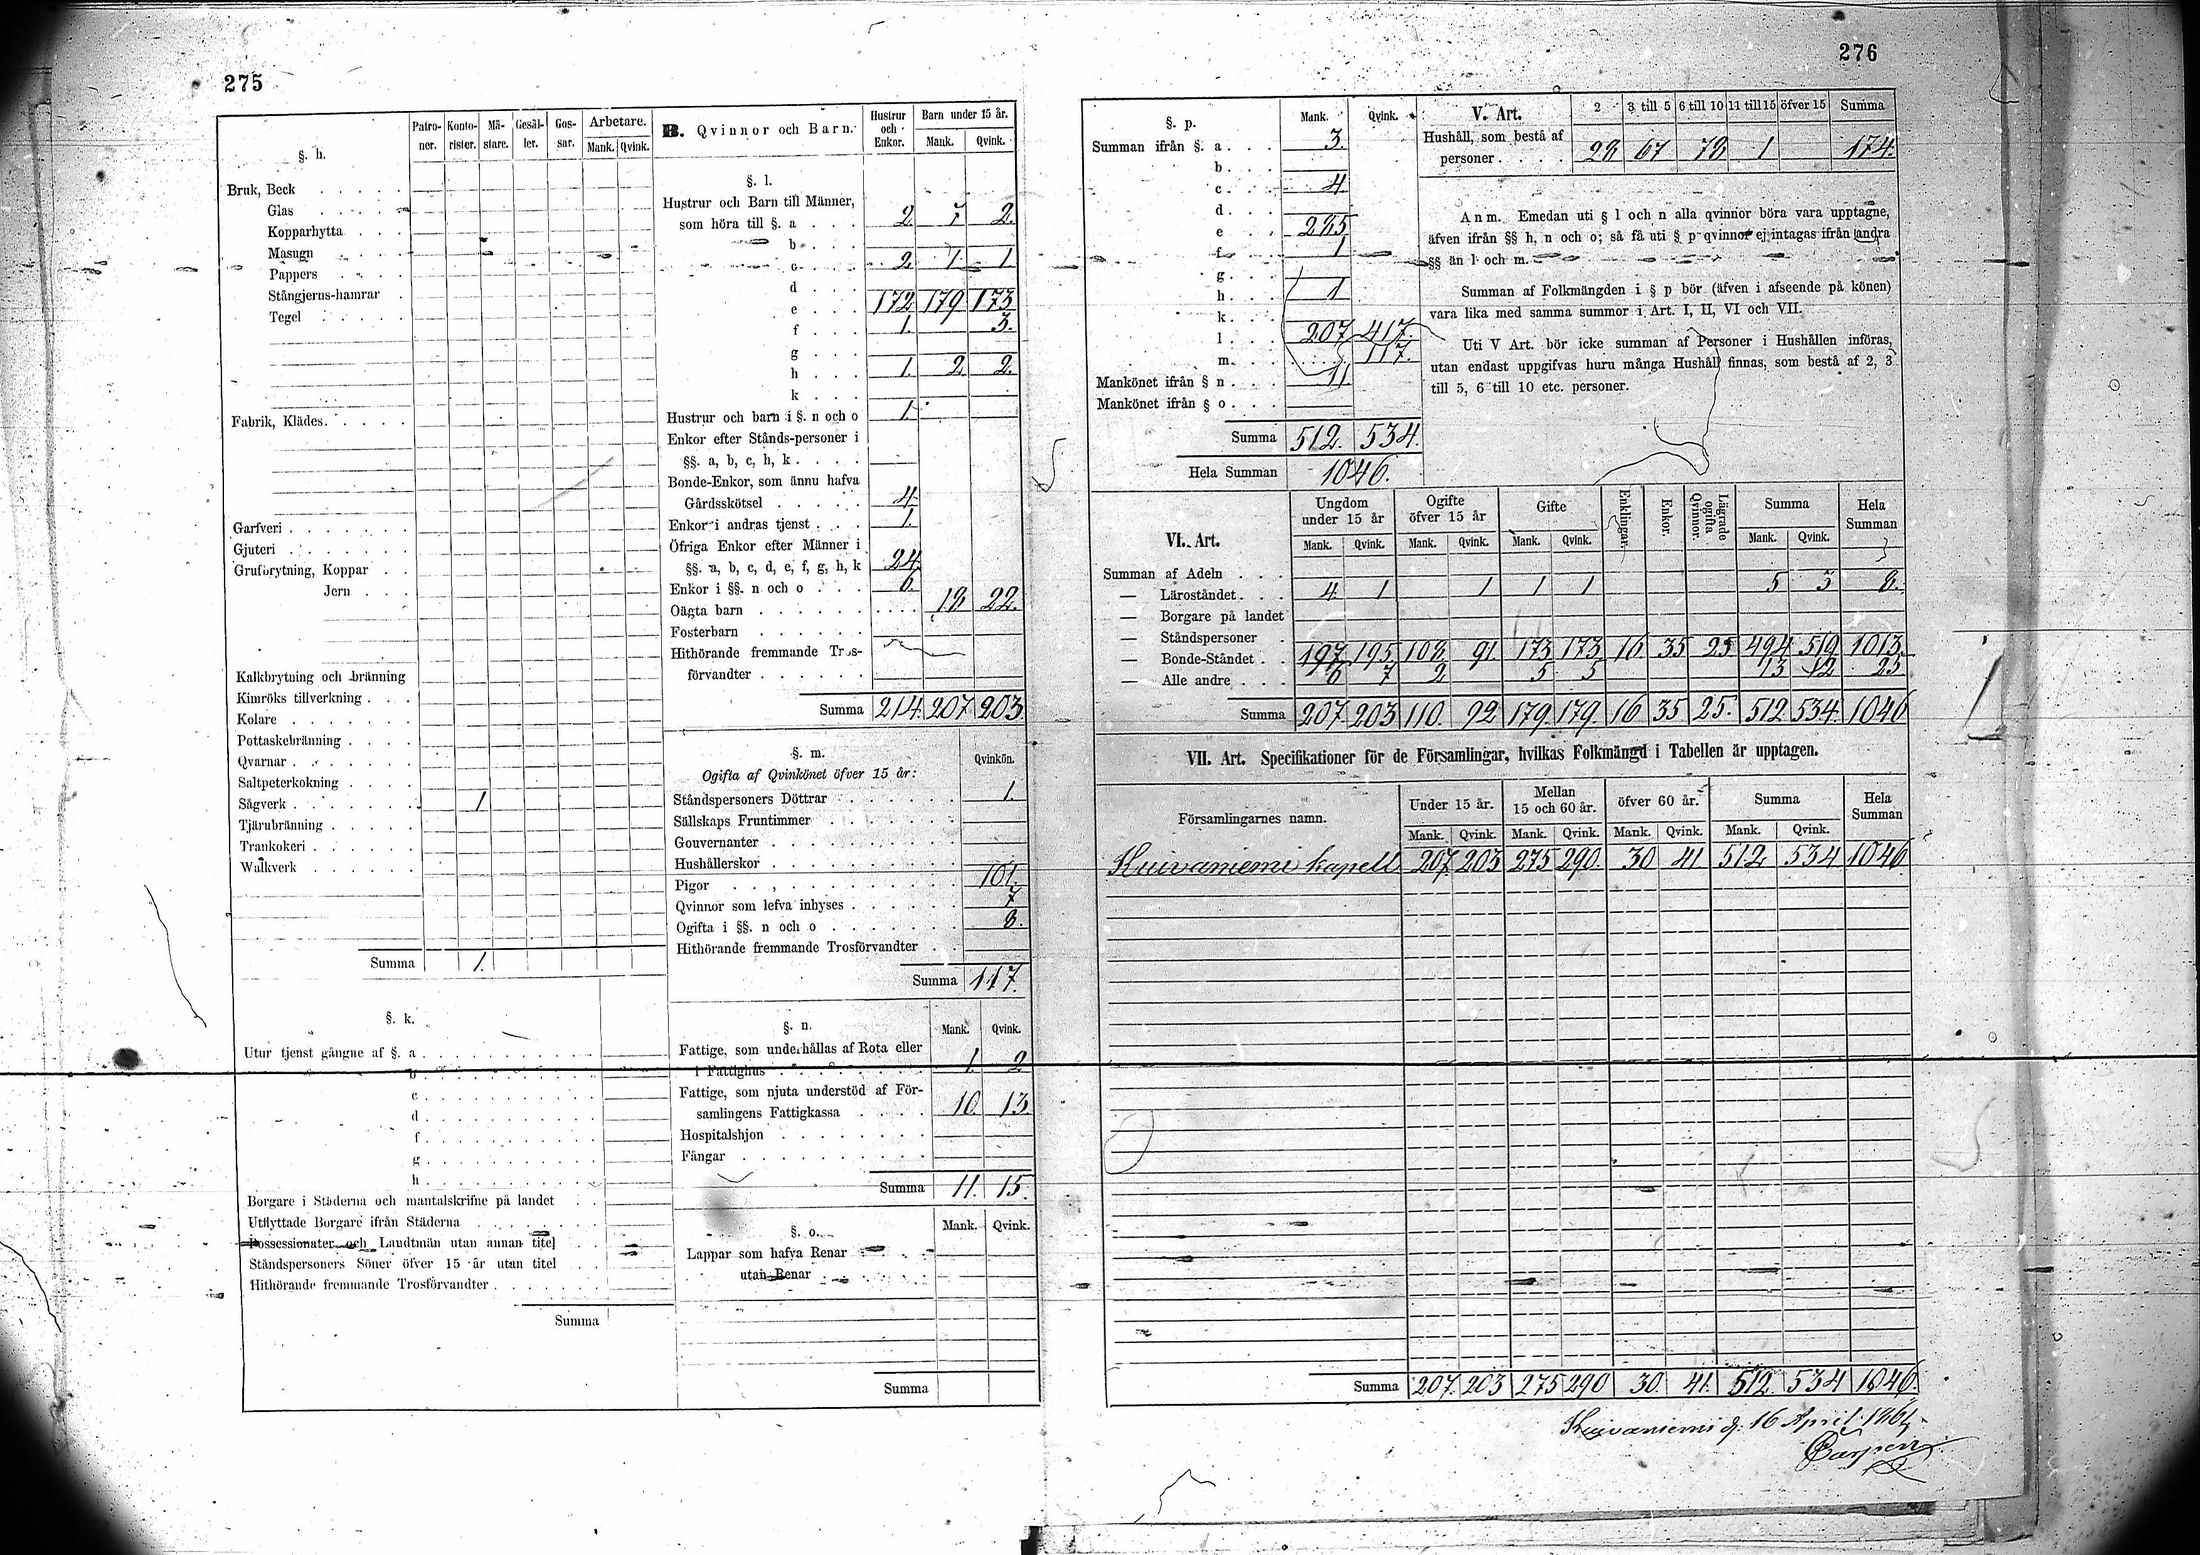 275
§. h.
Patroner. Kontorister. Mästare. Gesäller. Gossar. Arbetare. Mank. Qvink.
Bruk, Beck
Glas
Kopparhytta
Masugn
Pappers
Stångjerns-hamrar
Tegel
Fabrik, Klädes.
Garfveri
Gjuteri
Grufbrytning, Koppar
Jern
Kalkbrytning och bränning
Kimröks tillverkning
Kolare
Pottaskebränning
Qvarnar
Saltpeterkokning
Sågverk 1
Tjärubränning
Trankokeri
Walkverk
Summa 1.
§. k.
Utur tjenst gångne af §. a
b
c
d
f
g
h
Borgare i Städerna och mantalskrifne på landet
Utflyttade Borgare ifrån Städerna
Possessionater och Landtmän utan annan titel
Ståndspersoners Söner öfver 15 år utan titel
Hithörande fremmande Trosförvandter
Summa
B. Qvinnor och Barn.
Hustrur och Enkor. Barn under 15 år. Mank. Qvink.
§. l.
Hustrur och Barn till Männer,
som höra till §. a 2 7 2
b
c 2 1 1
d
e 172 179 173
f 1. 3.
g
h 1. 2 2
k
Hustrur och barn i §. n och o 1.
Enkor efter Stånds-personer i
§§. a, b, c, h, k
Bonde-Enkor, som ännu hafva
Gårdsskötsel 4
Enkor i andras tjenst 1.
Öfriga Enkor efter Männer i
§§. a, b, c, d, e, f, g, h, k 24
Enkor i §§. n och o 6.
Oägta barn 18 22.
Fosterbarn
Hithörande fremmande Tros-
förvandter
Summa 214. 207 203.
§. m.
Ogifta af Qvinkönet öfver 15 år: Qvinkön.
Ståndspersoners Döttrar 1.
Sällskaps Fruntimmer
Gouvernanter
Hushållerskor
Pigor 101.
Qvinnor som lefva inhyses 7
Ogifta i §§. n och o 8.
Hithörande fremmande Trosförvandter
Summa 117.
§. n. Mank. Qvink.
Fattige, som underhållas af Rota eller
i Fattighus 1. 2
Fattige, som njuta understöd af För-
samlingens Fattigkassa 10. 13
Hospitalshjon
Fångar
Summa 11. 15.
§. o. Mank. Qvink.
Lappar som hafva Renar
utan Renar
Summa
276
§. p. Mank. Qvink.
Summan ifrån §. a 3.
b
c 4
d
e 285
f 1
g
h 1
k
l 207 417.
m 117.
Mankönet ifrån § n 11
Mankönet ifrån § o
Summa 512. 534.
Hela Summan 1046.
V. Art. 2 3 till 5 6 till 10 11 till 15 öfver 15 Summa
Hushåll, som bestå af
personer 28 67 78 1 174.
Anm. Emedan uti § l och n alla qvinnor böra vara upptagne,
äfven ifrån §§ h, n och o; så få uti § p qvinnor ej intagas ifrån andra
§§ än l och m.
Summan af Folkmängden i § p bör (äfven i afseende på könen)
vara lika med samma summor i Art. I, II, VI och VII.
Uti V Art. bör icke summan af Personer i Hushållen införas,
utan endast uppgifvas huru många Hushåll finnas, som bestå af 2, 3
till 5, 6 till 10 etc. personer.
VI. Art.
Ungdom under 15 år Ogifte öfver 15 år Gifte Enklingar. Enkor. Lägrade ogifta Qvinnor. Summa Hela Summan
Mank. Qvink. Mank. Qvink. Mank. Qvink. Mank. Qvink.
Summan af Adeln
— Läroståndet 4 1 1 1 1 5 3 8.
— Borgare på landet
— Ståndspersoner
— Bonde-Ståndet 197 195 108 91 173 173 16 35 25 494 519 1013
— Alle andre 6 7 2 5 5 13 12 25
Summa 207 203 110. 92 179. 179. 16 35 25. 512 534. 1046
VII. Art. Specifikationer för de Församlingar, hvilkas Folkmängd i Tabellen är upptagen.
Församlingarnes namn. Under 15 år. Mellan 15 och 60 år. öfver 60 år. Summa Hela Summan
Mank. Qvink. Mank. Qvink. Mank. Qvink. Mank. Qvink.
Kuivaniemi kapell 207 203 275 290. 30 41 512 534 1046
Summa 207. 203 275 290 30. 41. 512 534 1046.
Kuivaniemi d. 16 April 186